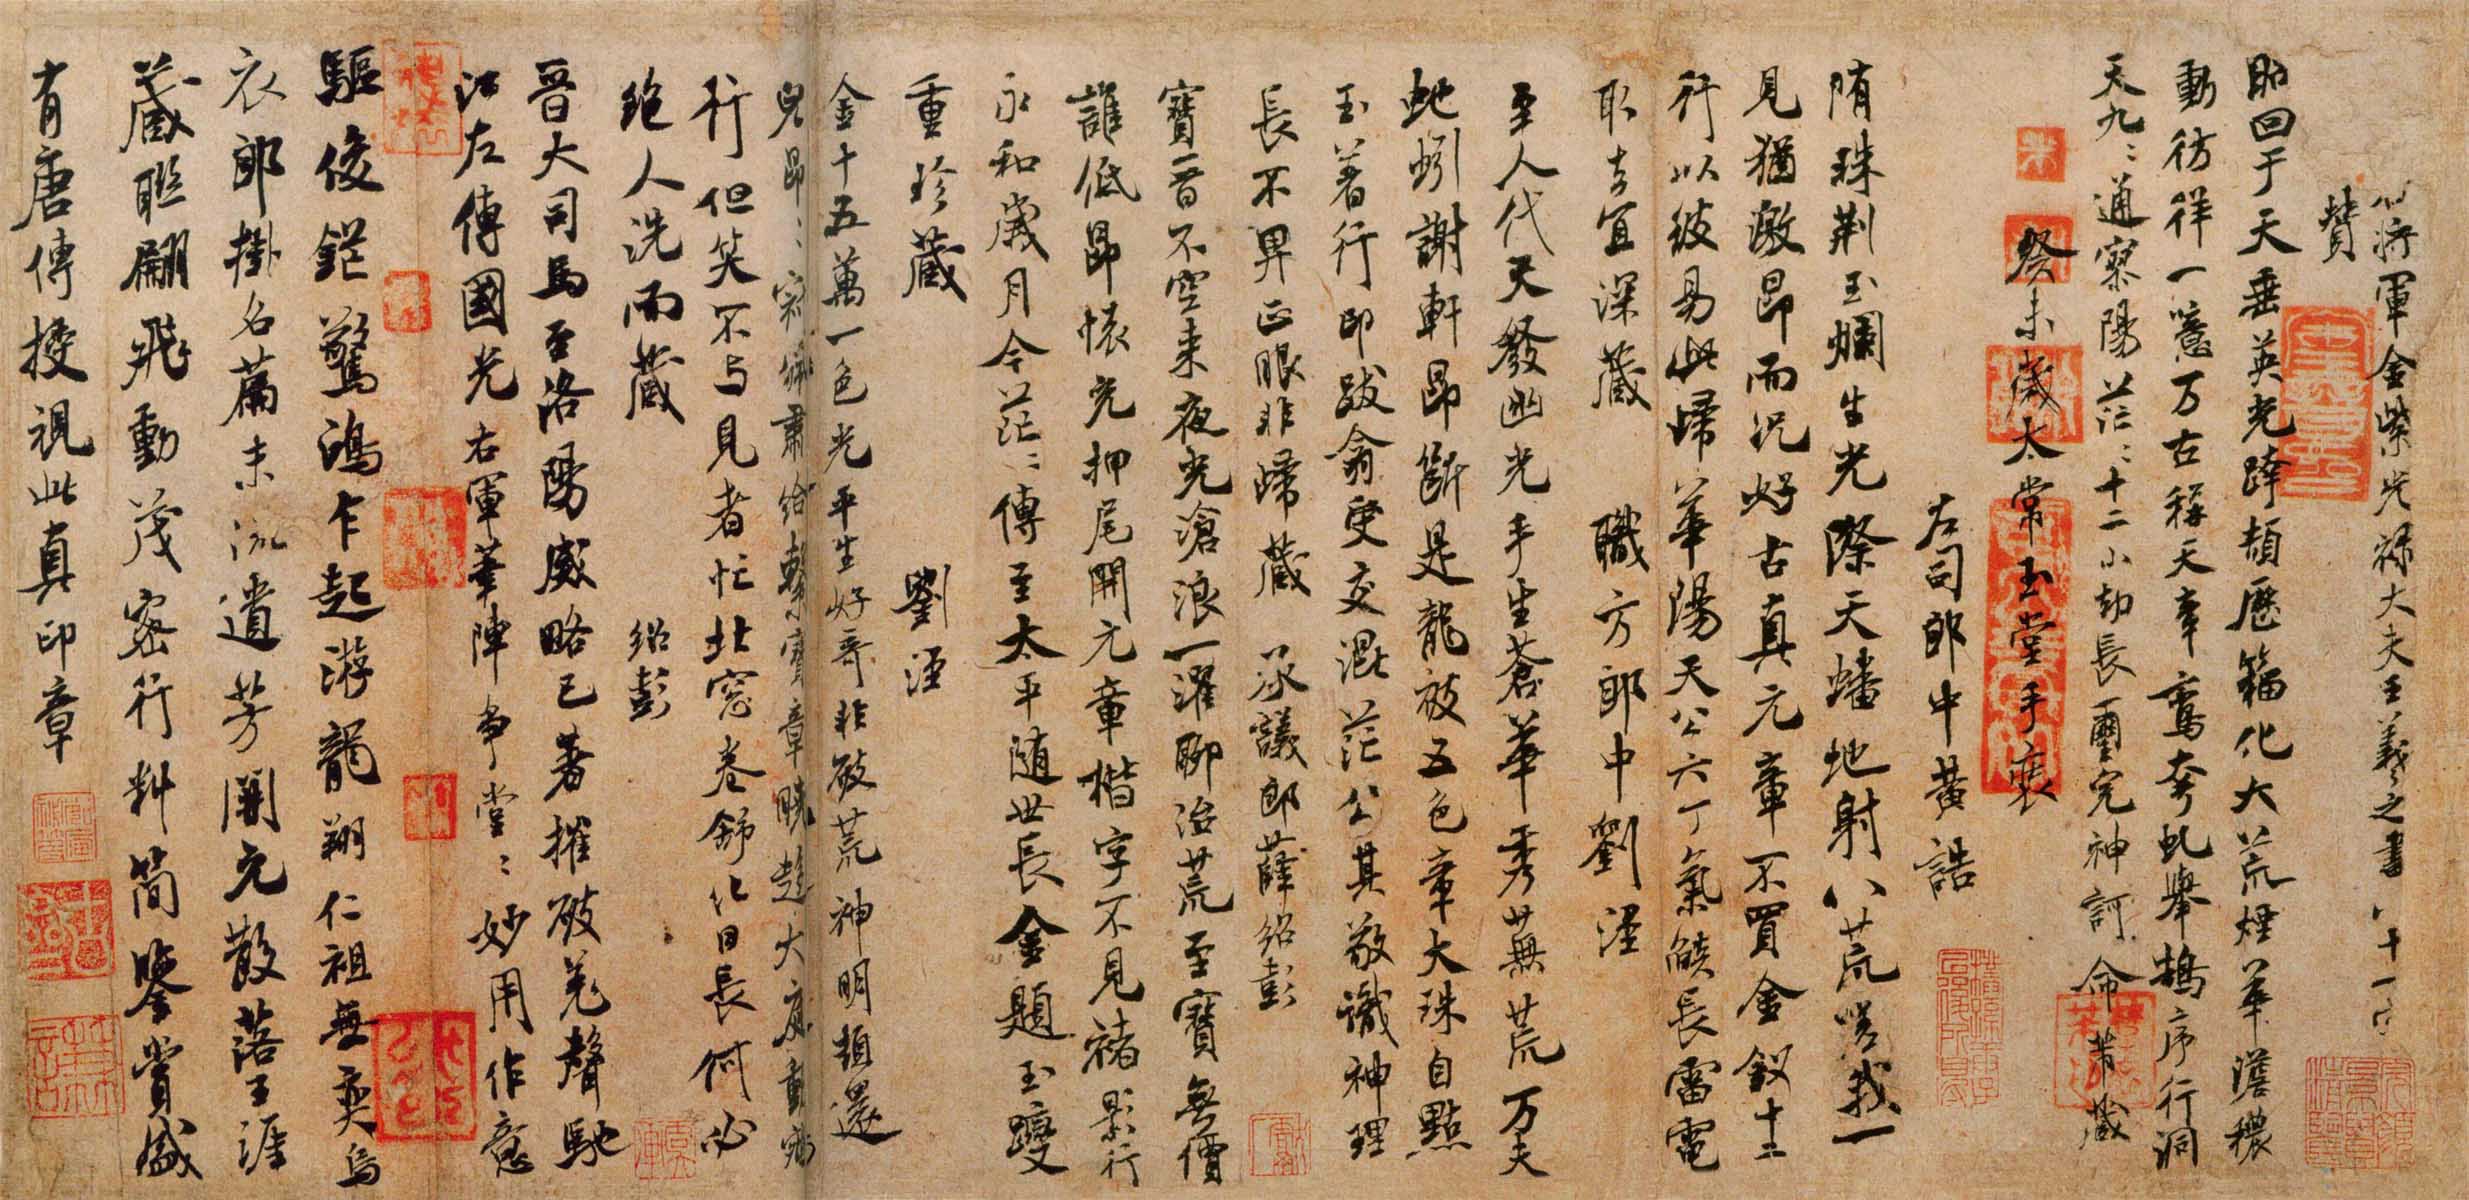 將軍金紫光祿大夫王羲之書八十一字
贊
昭回于天垂英光跨頡歷籀化大荒煙華澹穠
動彷徉一噫万古稱天章鸞夸虬舉鵠序行洞
天九〻通寥陽茫〻十二小劫長璽完神訶命芾藏
癸未歲太常玉堂手裝
左司郎中黃誥
隋珠荊玉爛生光際天蟠地射八荒嗟我一
見猶激昂而況好古真元章不買金釵十二
行以彼易此歸華陽天公六丁氣餤長雷電
取去宜深藏 職方郎中劉涇
至人代天發幽光手生蒼華秀蕪荒万夫
虵蚓謝軒昂斷是龍被五色章大珠自點
玉著行印跋翕雙交混茫公其敬識神理
長不畀正眼非歸藏 承議郎薛紹彭
寶晉不空来夜光滄浪一濯聊治荒至寶無價
誰低昂懷充押尾開元章楷字不見褚影行
永和歲月今茫〻傳至太平隨世長金題玉躞
重珍藏 劉涇
金十五萬一色光平生好奇非破荒神明頓還
兒昂〻肅給繫寶章曉趨大庭動
行但笑不与見者忙北窓卷舒化日長何必
絶人洗而藏 紹彭
晉大司馬至洛陽威略已著摧破羌聲馳
江左傳國光右軍筆陣爭堂〻妙用作意
驅俊鋩驚鴻乍起游龍翔仁祖無奕烏
衣郎掛名篇末流遺芳開元散落王涯
藏聮翩飛動茂密行料簡鑒賞盛
有唐傳授視此真印章